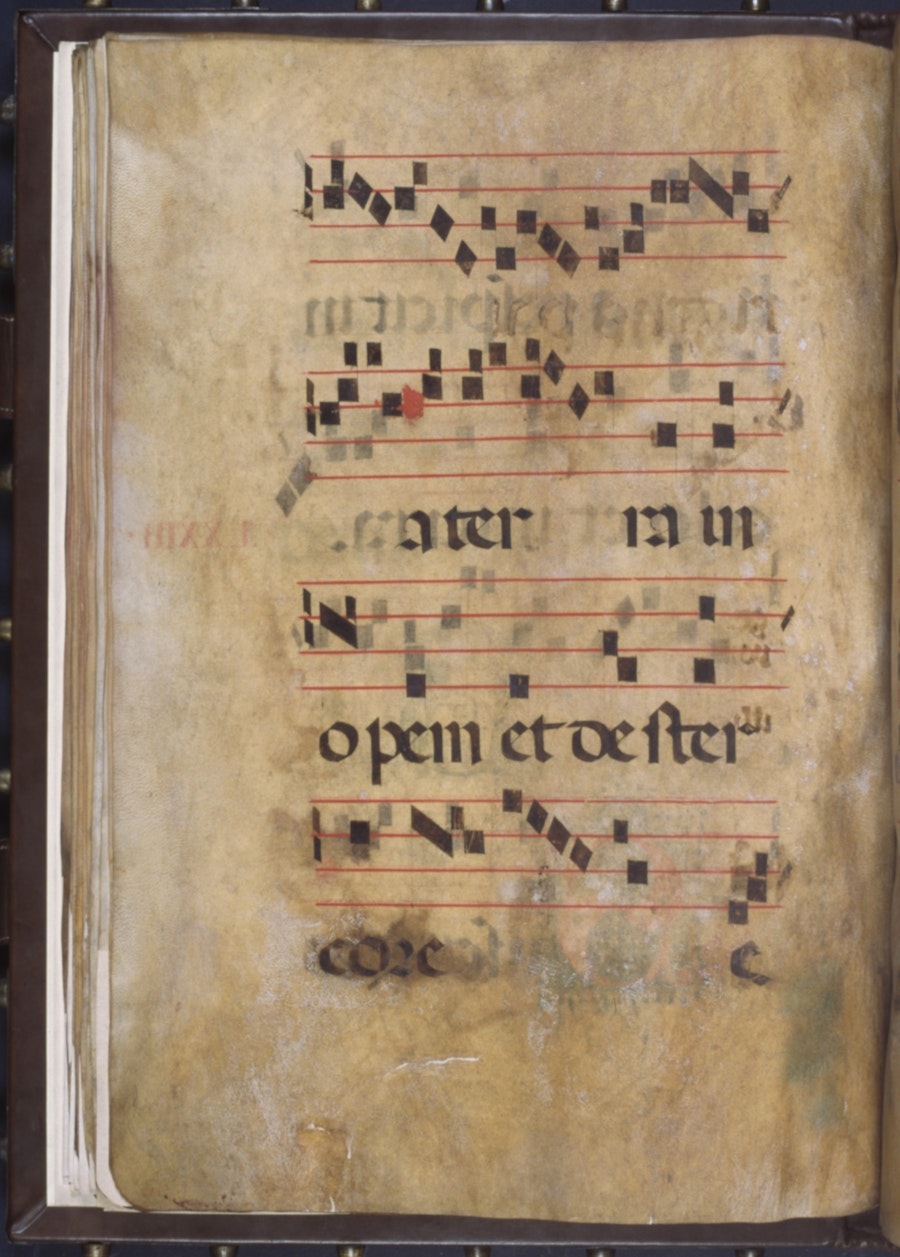 a ter ra in
o pem et de ster
core e